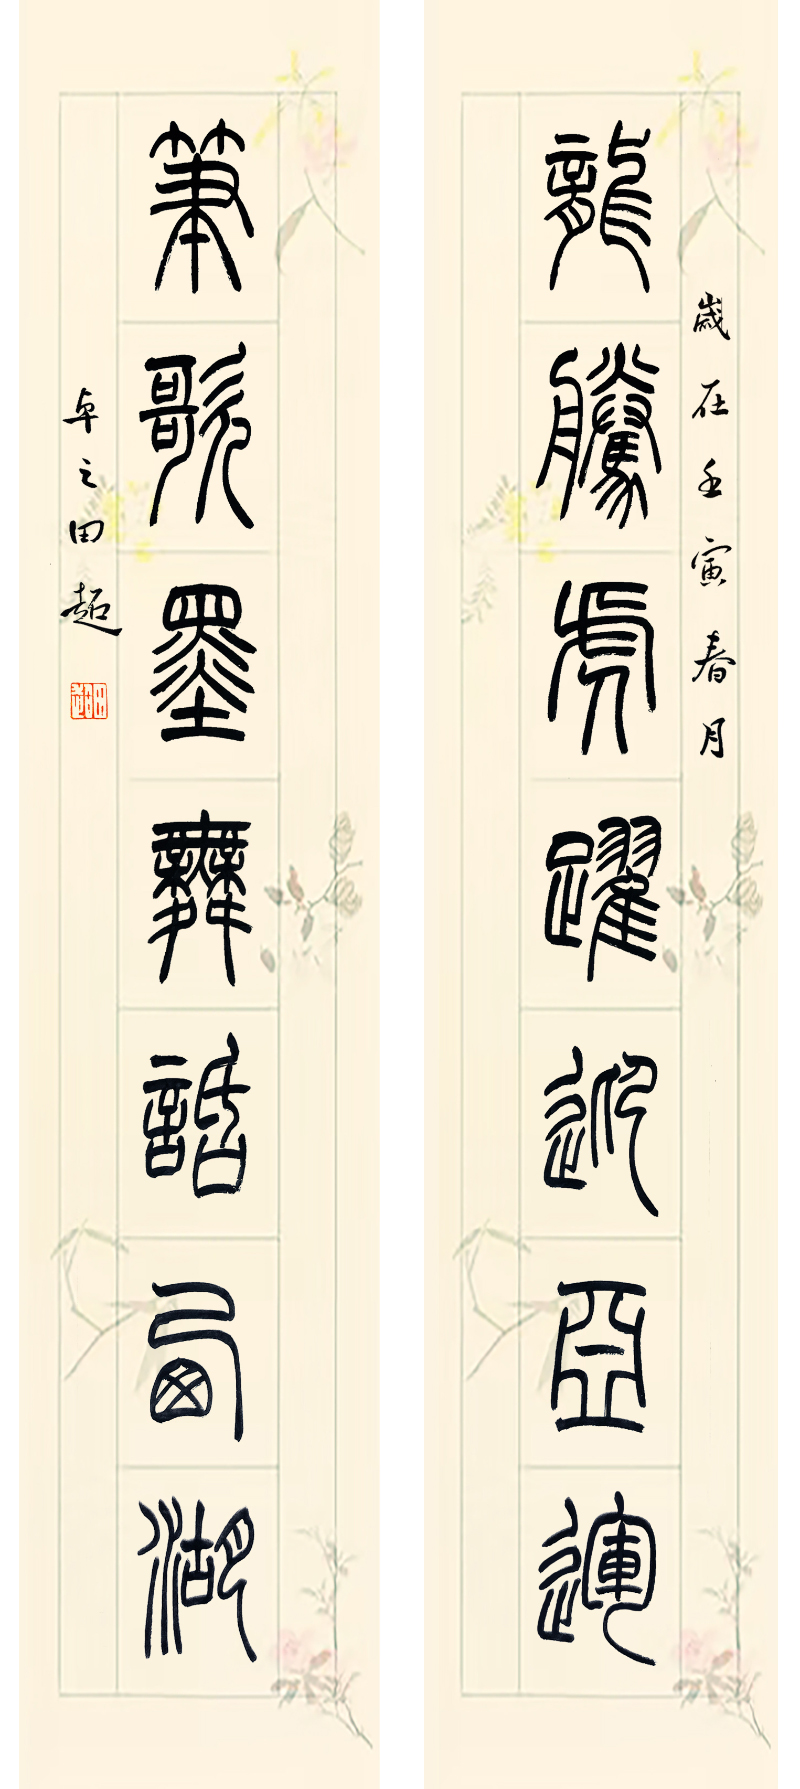 歲在壬寅春月
龍騰虎躍迎亞運
筆歌墨舞話西湖
卓之田超